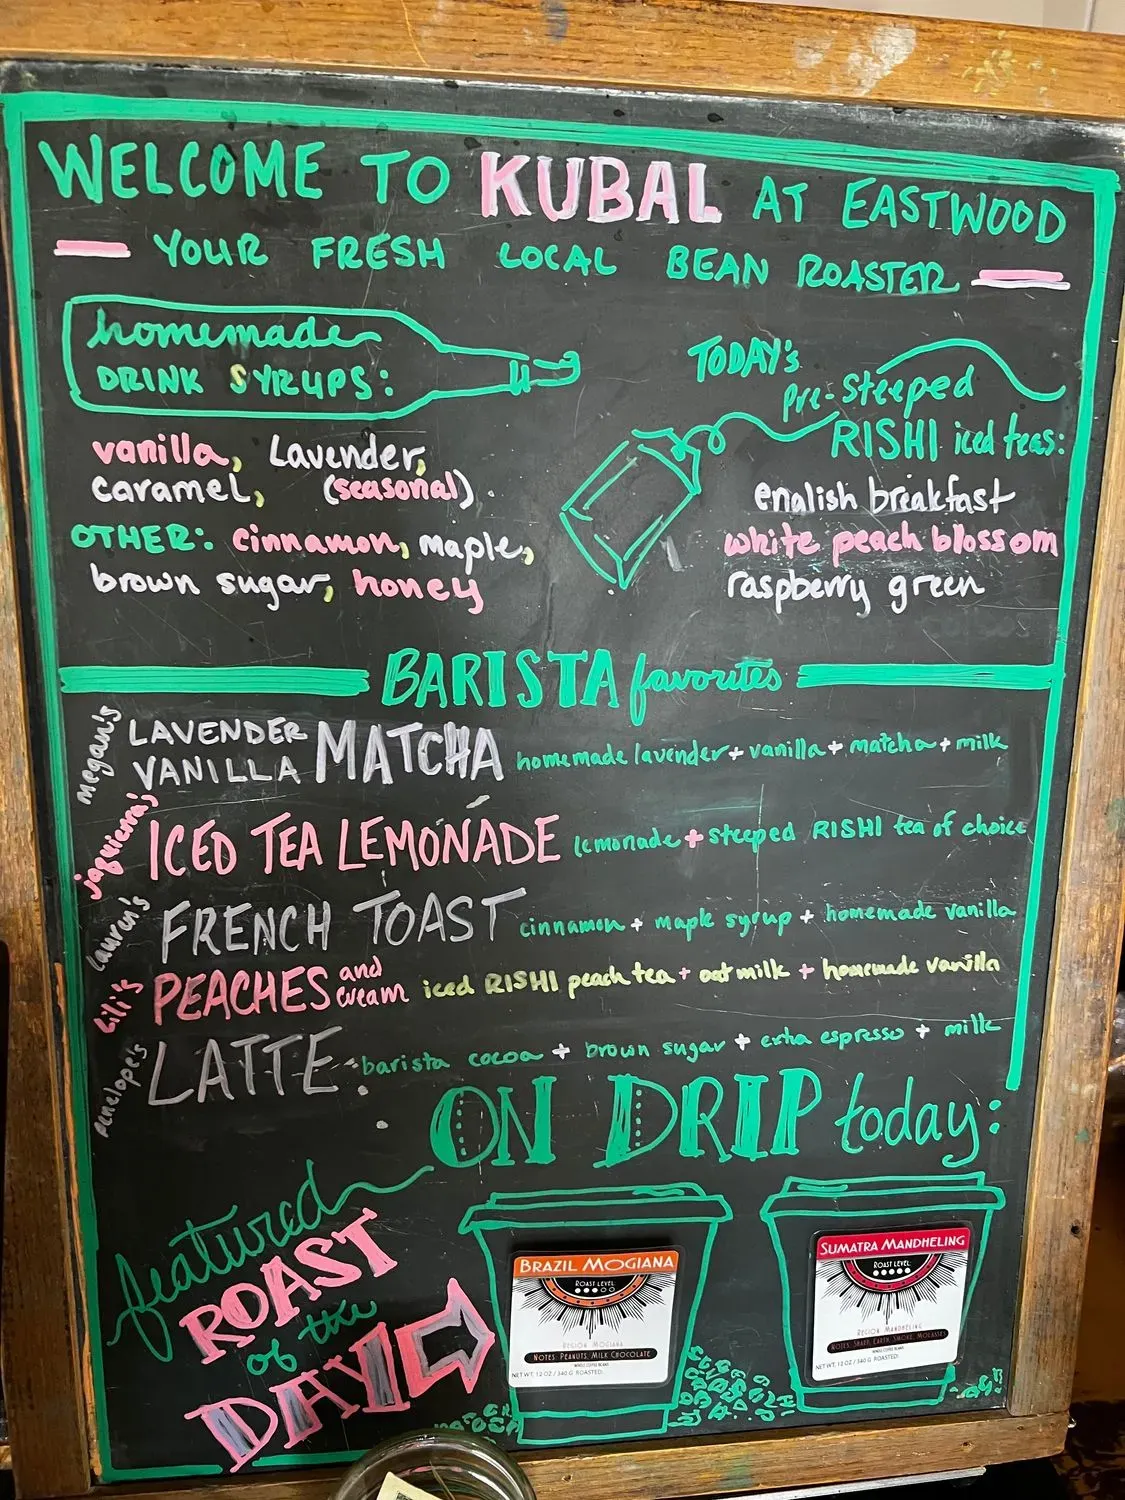 WELCOME TO KUBAL AT EASTWOOD
YOUR FRESH LOCAL BEAN ROASTER
homemade
DRINK SYRUPS:
vanilla, Lavender,
caramel, (seasonal).
OTHER: cinnamon, maple,
brown sugar, honey
TODAY's
pre-steeped
RISHI iced teas:
english breakfast
white peach blossom
raspberry green
BARISTA favorites
Megan's
LAVENDER
VANILLA MATCHA homemade lavender + vanilla + matcha + milk
ICED TEA LEMONADE lemonade + steeped RISHI tea of choice
lauren's
FRENCH TOAST cinnamon + maple syrup + homemade vanilla
Lili's
PEACHES and cream iced RISHI peach tea + oat milk + homemade vanilla
penelope's
LATTE barista cocoa + brown sugar + extra espresso + milk
ON DRIP today:
featured
ROAST
of the
DAY
BRAZIL MOGIANA
ROAST LEVEL
REGION MOGIANA
NOTES: PEANUTS, MILK CHOCOLATE
WHOLE COFFEE BEANS
NET WT. 12 OZ / 340 G ROASTED:
SUMATRA MANDHELING
ROAST LEVEL
REGION MANDHELING
NOTES: SHARP, EARTH, SMOKE, MOLASSES
WHOLE COFFEE BEANS
NET WT. 12 OZ / 340 G ROASTED: